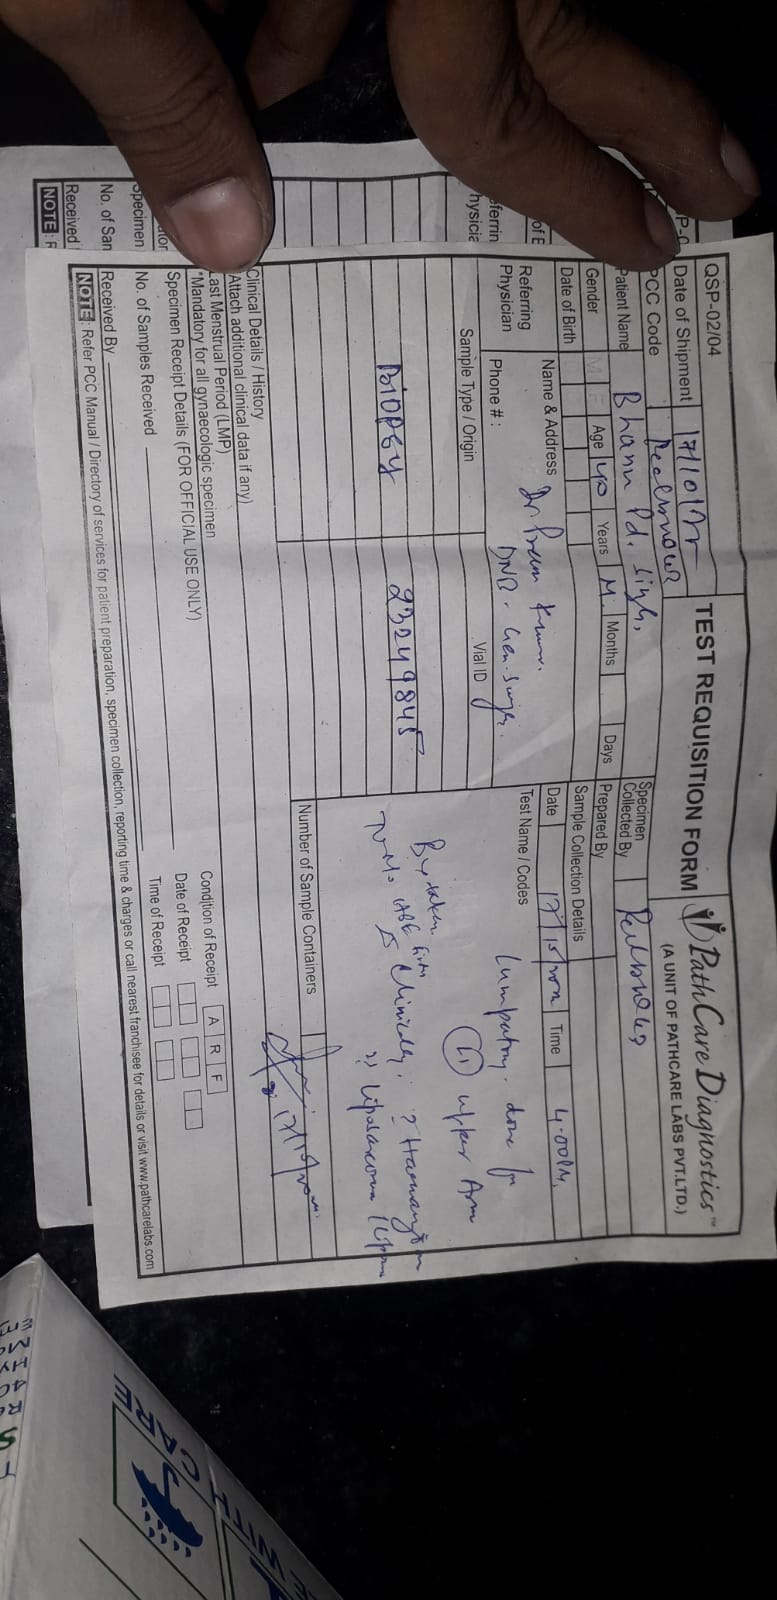 QSP-02/04
TEST REQUISITION FORM
PathCare Diagnostics™
(A UNIT OF PATHCARE LABS PVT.LTD.)
Date of Shipment 17/10/22
PCC Code
Patient Name Bhanu Pd. Singh,
Gender M F Age 40 Years M. Months Days
Date of Birth
Referring Physician
Name & Address Dr. Prem Kumar.
DNB - Gen-Surger.
Phone # :
Specimen Collected By
Prepared By
Sample Collection Details
Date Time 4.00PM,
Test Name / Codes
Lumpectomy. done for
(L) upper Arm
Bx taken
Clinically: ? Hemangiom
?? Liposarcoma
Sample Type / Origin
Vial ID
BIOPSY
23249845
Number of Sample Containers
Clinical Details / History
(Attach additional clinical data if any)
Last Menstrual Period (LMP)
*Mandatory for all gynaecologic specimen
Specimen Receipt Details (FOR OFFICIAL USE ONLY)
No. of Samples Received
Received By
Condition of Receipt A R F
Date of Receipt
Time of Receipt
NOTE : Refer PCC Manual / Directory of services for patient preparation, specimen collection, reporting time & charges or call nearest franchisee for details or visit www.pathcarelabs.com
No. of San
Received
NOTE
Specimen
CARE
WITH